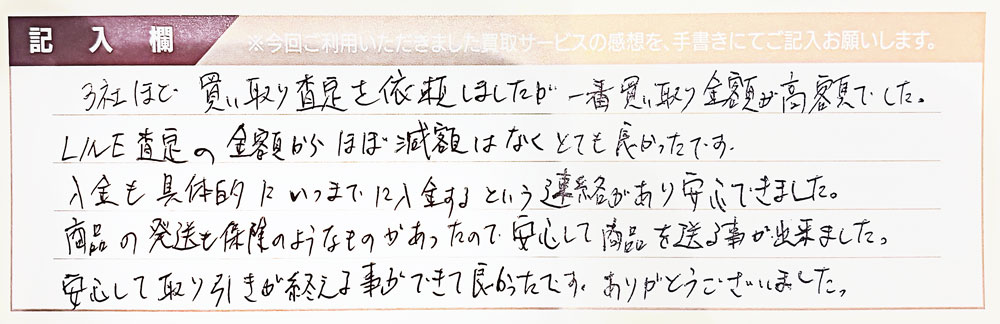 記入欄
※今回ご利用いただきました買取サービスの感想を、手書きにてご記入お願いします。
3社ほど 買い取り査定を依頼しましたが 一番買い取り金額が高額でした。
LINE査定の金額からほぼ減額はなくとても良かったです。
入金も具体的にいつまでに入金するという連絡があり安心できました。
商品の発送も保険のようなものがあったので安心して商品を送る事が出来ました。
安心して取り引きが終える事ができて良かったです。ありがとうございました。